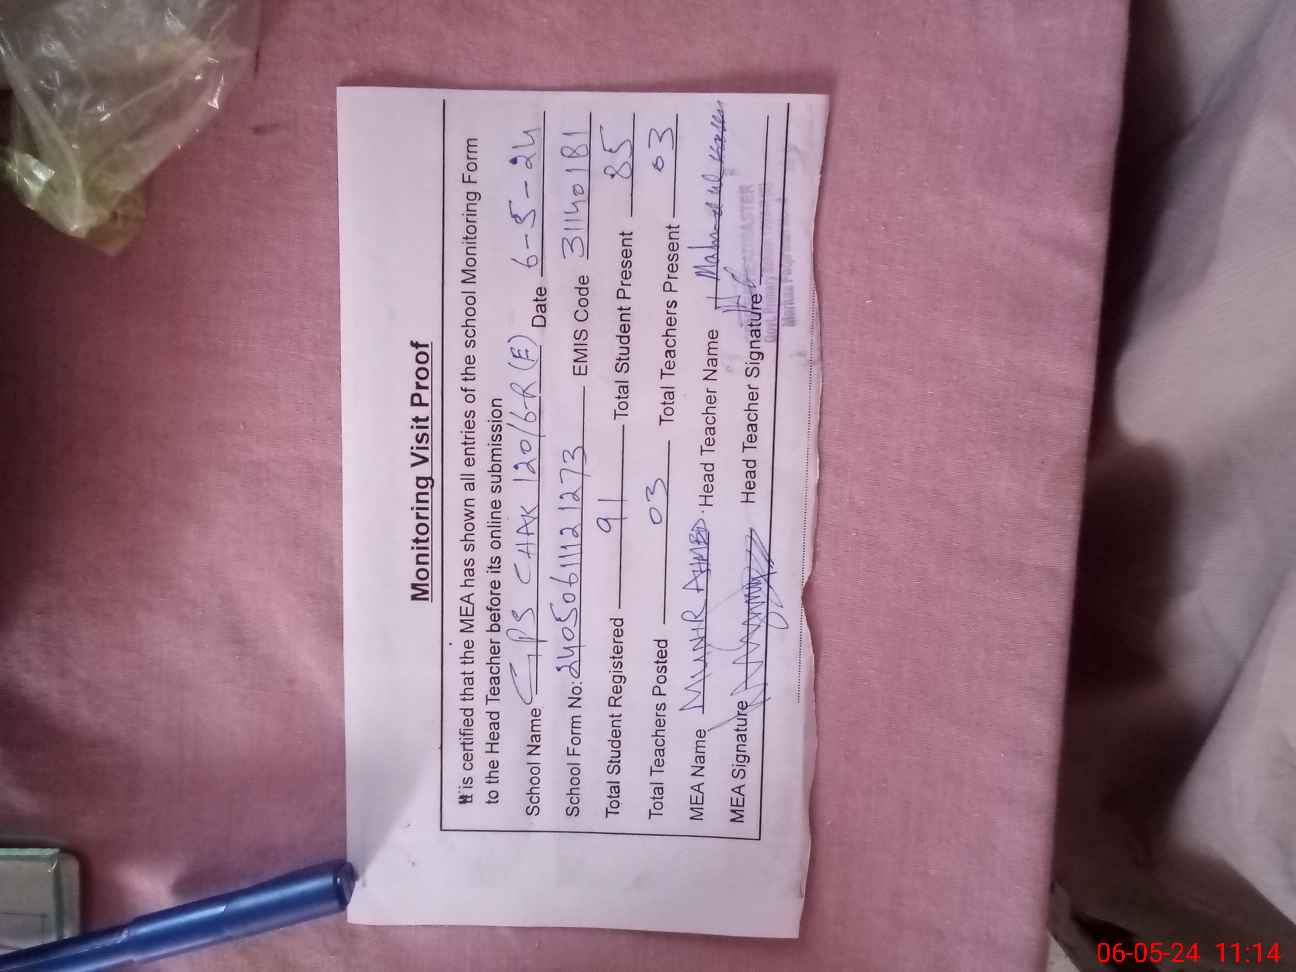 Monitoring Visit Proof
It is certified that the MEA has shown all entries of the school Monitoring Form
to the Head Teacher before its online submission
School Name GPS CHAK 120/6-R (E) Date 6-5-24
School Form No: 24050611121273 EMIS Code 31140181
Total Student Registered 91 Total Student Present 85
Total Teachers Posted 03 Total Teachers Present 03
MEA Name MUNIR AHMED Head Teacher Name
MEA Signature Head Teacher Signature
06-05-24 11:14